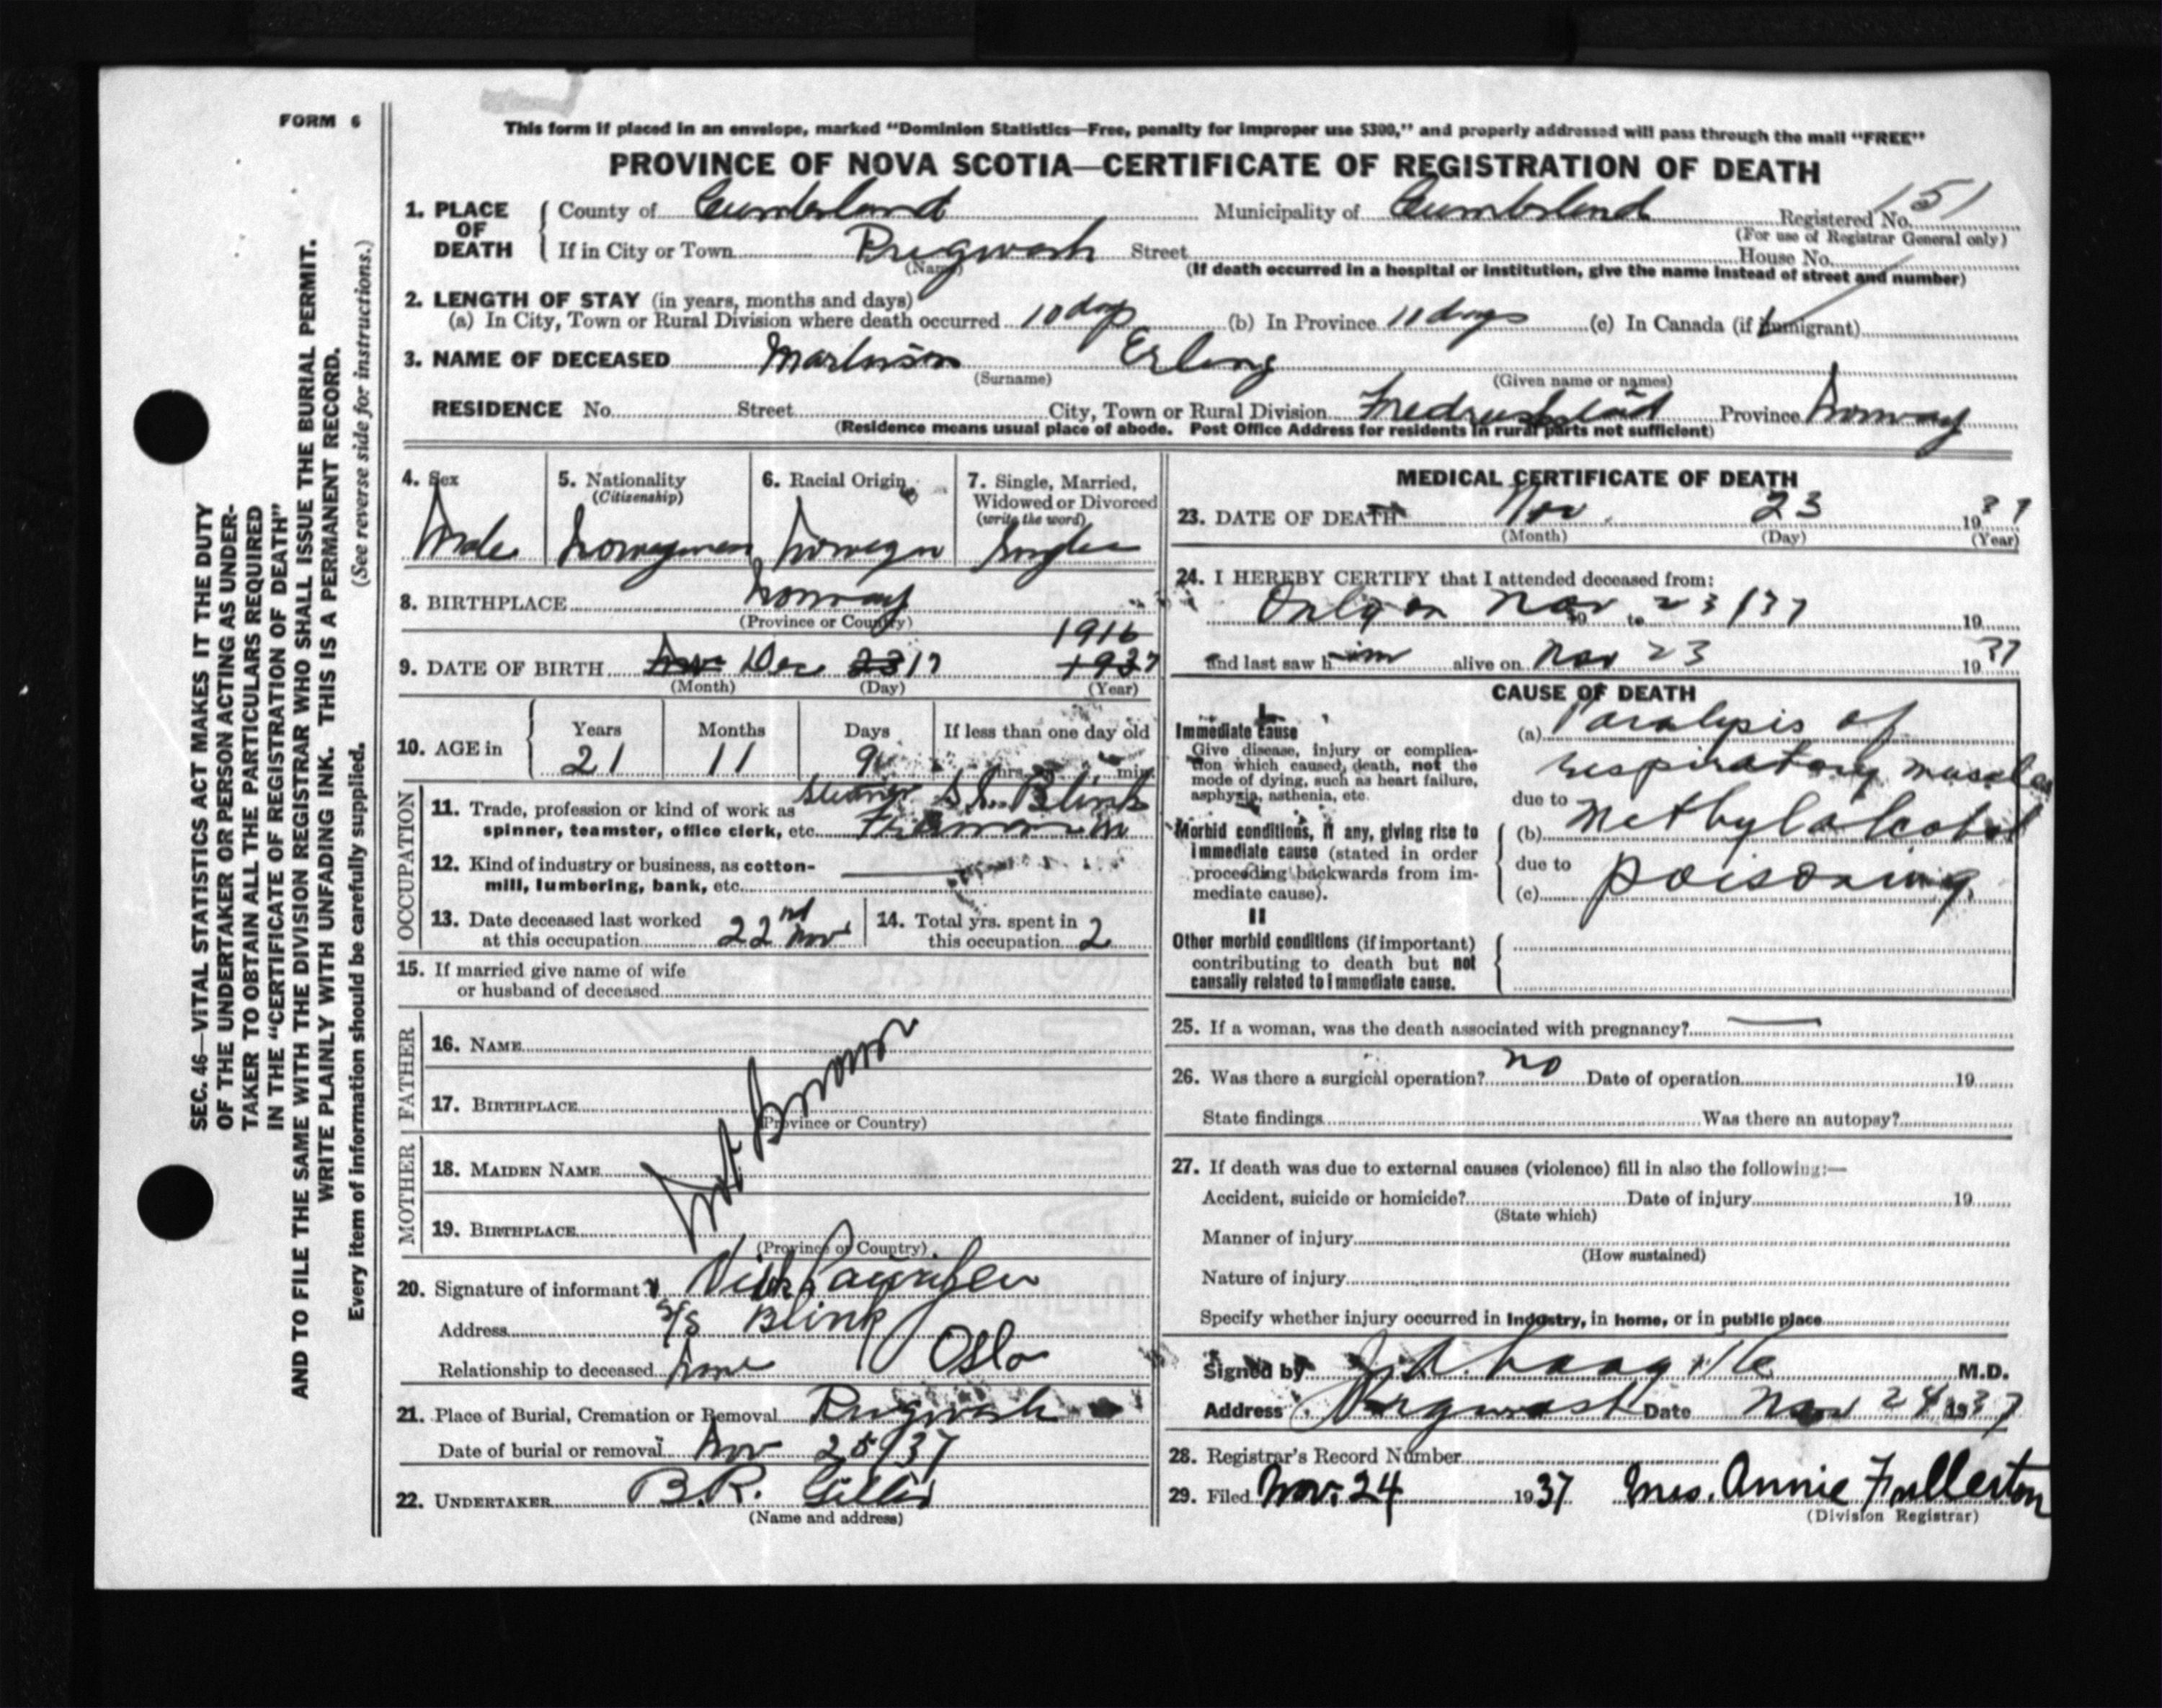 FORM 6
This form if placed in an envelope, marked "Dominion Statistics—Free, penalty for improper use $300," and properly addressed will pass through the mail "FREE"
PROVINCE OF NOVA SCOTIA—CERTIFICATE OF REGISTRATION OF DEATH
SEC. 46—VITAL STATISTICS ACT MAKES IT THE DUTY
OF THE UNDERTAKER OR PERSON ACTING AS UNDER-
TAKER TO OBTAIN ALL THE PARTICULARS REQUIRED
IN THE "CERTIFICATE OF REGISTRATION OF DEATH"
AND TO FILE THE SAME WITH THE DIVISION REGISTRAR WHO SHALL ISSUE THE BURIAL PERMIT.
WRITE PLAINLY WITH UNFADING INK. THIS IS A PERMANENT RECORD.
Every item of information should be carefully supplied. (See reverse side for instructions.)
1. PLACE OF DEATH County of Cumberland Municipality of Cumberland Registered No. 151
(For use of Registrar General only)
If in City or Town Pugwash Street House No.
(Name) (If death occurred in a hospital or institution, give the name instead of street and number)
2. LENGTH OF STAY (in years, months and days)
(a) In City, Town or Rural Division where death occurred 10 days (b) In Province 11 days (c) In Canada (if immigrant)
3. NAME OF DECEASED Martinsen Erling
(Surname) (Given name or names)
RESIDENCE No. Street City, Town or Rural Division Fredrikstad Province Norway
(Residence means usual place of abode. Post Office Address for residents in rural parts not sufficient)
4. Sex
Male
5. Nationality
(Citizenship)
Norwegian
6. Racial Origin
Norwegn
7. Single, Married,
Widowed or Divorced
(write the word)
Single
8. BIRTHPLACE Norway
(Province or Country)
1916
9. DATE OF BIRTH Nov Dec 23 17 1937
(Month) (Day) (Year)
10. AGE in Years Months Days If less than one day old
21 11 9 hrs. min.
OCCUPATION
11. Trade, profession or kind of work as Steamer S.S. Blink
spinner, teamster, office clerk, etc. Fireman
12. Kind of industry or business, as cotton-
mill, lumbering, bank, etc.
13. Date deceased last worked
at this occupation 22nd Nov
14. Total yrs. spent in
this occupation 2
15. If married give name of wife
or husband of deceased
FATHER
16. NAME
17. BIRTHPLACE
(Province or Country)
Not Known
MOTHER
18. MAIDEN NAME
19. BIRTHPLACE
(Province or Country)
20. Signature of informant
Address S/S Blink Oslo
Relationship to deceased None
21. Place of Burial, Cremation or Removal Pugwash
Date of burial or removal Nov 25/37
22. UNDERTAKER B.R. Gillis
(Name and address)
MEDICAL CERTIFICATE OF DEATH
23. DATE OF DEATH Nov. 23 1937
(Month) (Day) (Year)
24. I HEREBY CERTIFY that I attended deceased from:
Only on Nov 19 to 23/37 19
and last saw him alive on Nov 23 1937
CAUSE OF DEATH
I
Immediate cause
Give disease, injury or complica-
tion which caused death, not the
mode of dying, such as heart failure,
asphyxia, asthenia, etc.
(a) Paralysis of
respiratory muscles
due to
Morbid conditions, if any, giving rise to
immediate cause (stated in order
proceeding backwards from im-
mediate cause).
(b) Methyl alcohol
due to
(c) poisoning
II
Other morbid conditions (if important)
contributing to death but not
causally related to immediate cause.
25. If a woman, was the death associated with pregnancy?
26. Was there a surgical operation? no Date of operation 19
State findings Was there an autopsy?
27. If death was due to external causes (violence) fill in also the following:—
Accident, suicide or homicide? Date of injury 19
(State which)
Manner of injury
(How sustained)
Nature of injury
Specify whether injury occurred in industry, in home, or in public place
Signed by M.D.
Address Pugwash Date Nov 24 1937
28. Registrar's Record Number
29. Filed Nov. 24 1937 Mrs. Annie Fullerton
(Division Registrar)